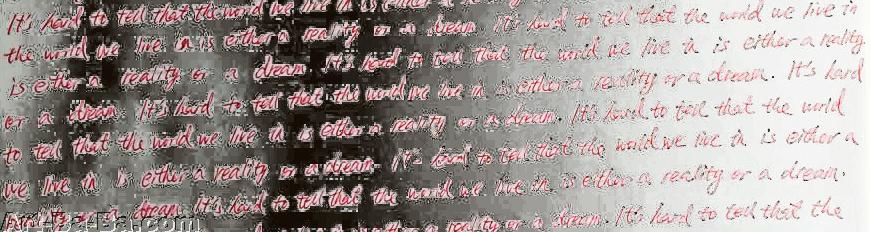 It's hard to tell that the world we live in is either a
the world we live in is either a reality or a dream. It's hard to tell that the world we live in
is either a reality or a dream. It's hard to tell that the world we live in is either a reality
or a dream. It's hard to tell that the world we live in is either a reality or a dream. It's hard
to tell that the world we live in is either a reality or a dream. It's hard to tell that the world
we live in is either a reality or a dream. It's hard to tell that the world we live in is either a
reality or a dream. It's hard to tell that the world we live in is either a reality or a dream.
a reality or a dream. It's hard to tell that the